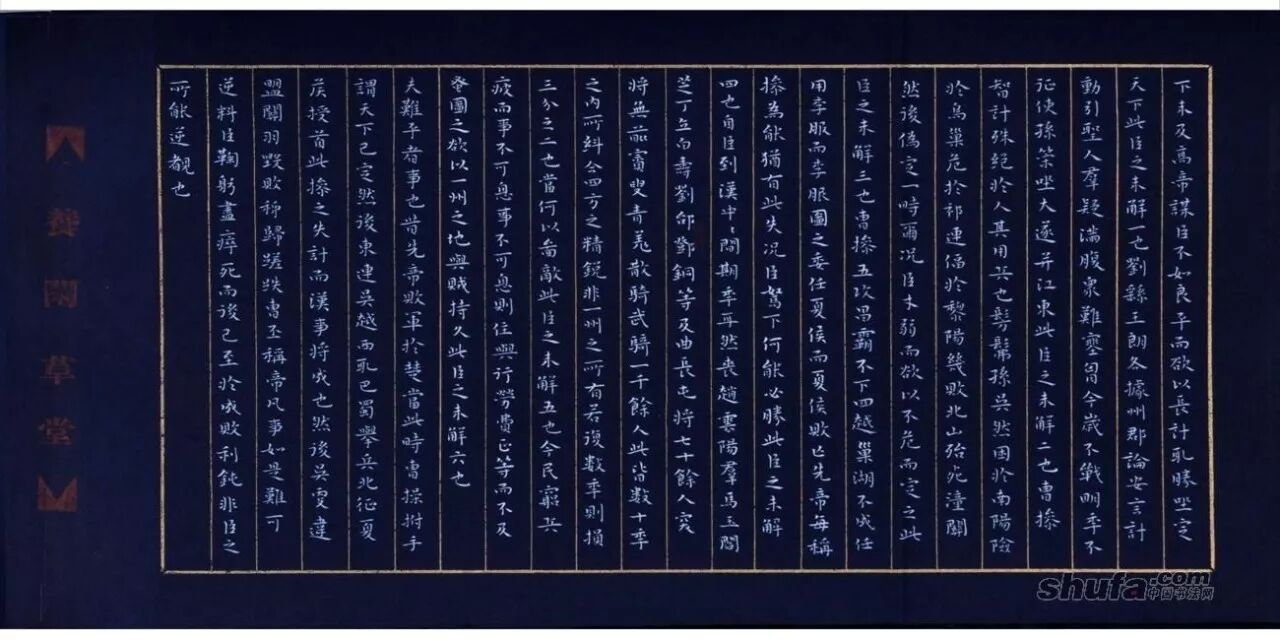 下未及高帝謀臣不如良平而欲以長計取勝坐定
天下此臣之未解一也劉繇王朗各據州郡論安言計
動引聖人羣疑滿腹衆難塞胷今歲不戰明年不
征使孫策坐大遂并江東此臣之未解二也曹操
智計殊絕於人其用兵也髣髴孫吳然困於南陽險
於烏巢危於祁連偪於黎陽幾敗北山殆死潼關
然後偽定一時爾况臣才弱而欲以不危而定之此
臣之未解三也曹操五攻昌霸不下四越巢湖不成任
用李服而李服圖之委任夏侯而夏侯敗亡先帝每稱
操為能猶有此失况臣駑下何能必勝此臣之未解
四也自臣到漢中〻間期年耳然喪趙雲陽羣馬玉閻
芝丁立白壽劉郃鄧銅等及曲長屯將七十餘人突
將無前賨叟青羌散騎武騎一千餘人此皆數十年
之内所糾合四方之精銳非一州之所有若復數年則損
三分之二也當何以圖敵此臣之未解五也今民窮兵
疲而事不可息事不可息則住與行勞費正等而不及
蚤圖之欲以一州之地與賊持久此臣之未解六也
夫難平者事也昔先帝敗軍於楚當此時曹操拊手
謂天下已定然後東連吳越西取巴蜀舉兵北征夏
侯授首此操之失計而漢事將成也然後吳更違
盟關羽毀敗秭歸蹉跌曹丕稱帝凡事如是難可
逆料臣鞠躬盡瘁死而後已至於成敗利鈍非臣之
所能逆覩也
養閑草堂
shufa.com
中国书法网